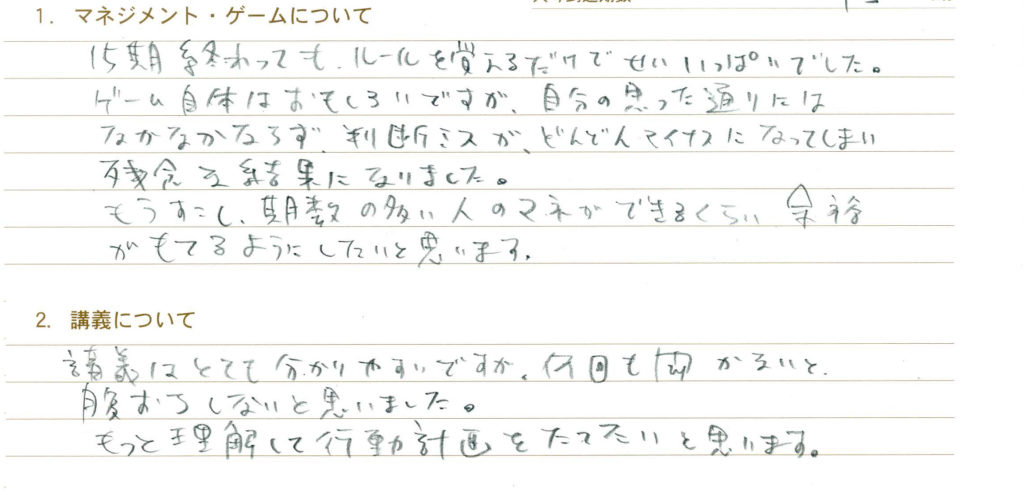 1. マネジメント・ゲームについて
15期終わっても、ルールを覚えるだけでせいいっぱいでした。
ゲーム自体はおもしろいですが、自分の思った通りには
なかなかならず、判断ミスが、どんどんマイナスになってしまい
残念な結果になりました。
もうすこし、期数の多い人のマネができるくらい余裕
がもてるようにしたいと思います。
2. 講義について
講義はとても分かりやすいですが、何回も聞かないと、
腹おちしないと思いました。
もっと理解して行動計画をたてたいと思います。